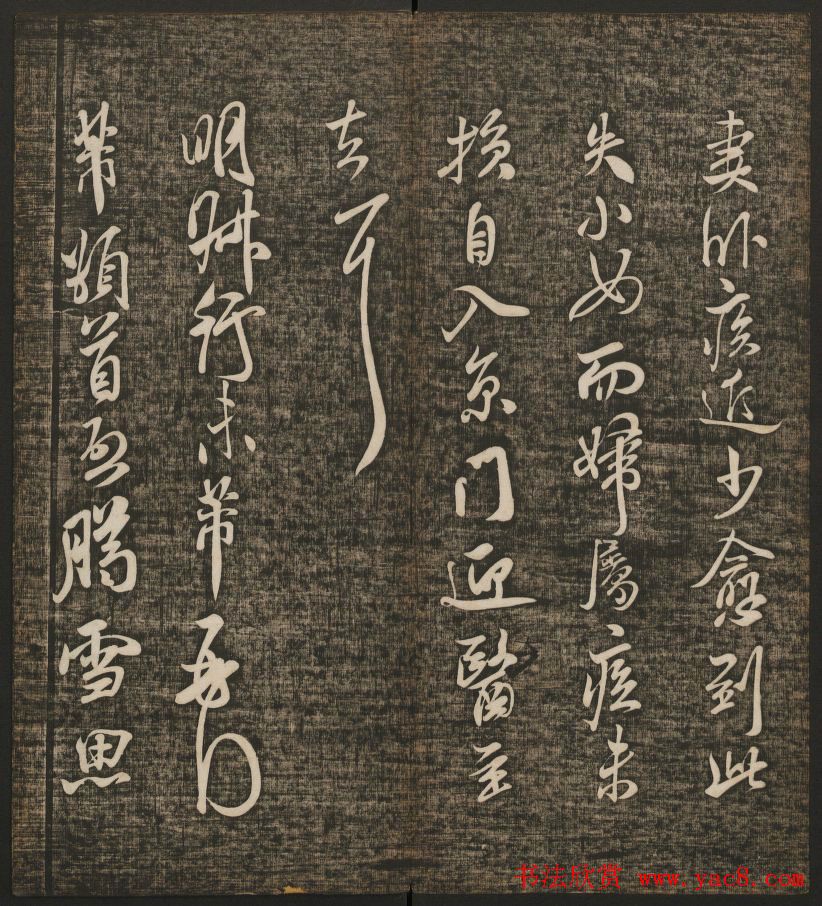 妻卧疾近少愈到此
失小女而婦屬疾未
損自入京門迎醫至
去耳
明行未芾
芾頓首臘雪思
书法欣赏 www.yac8.com